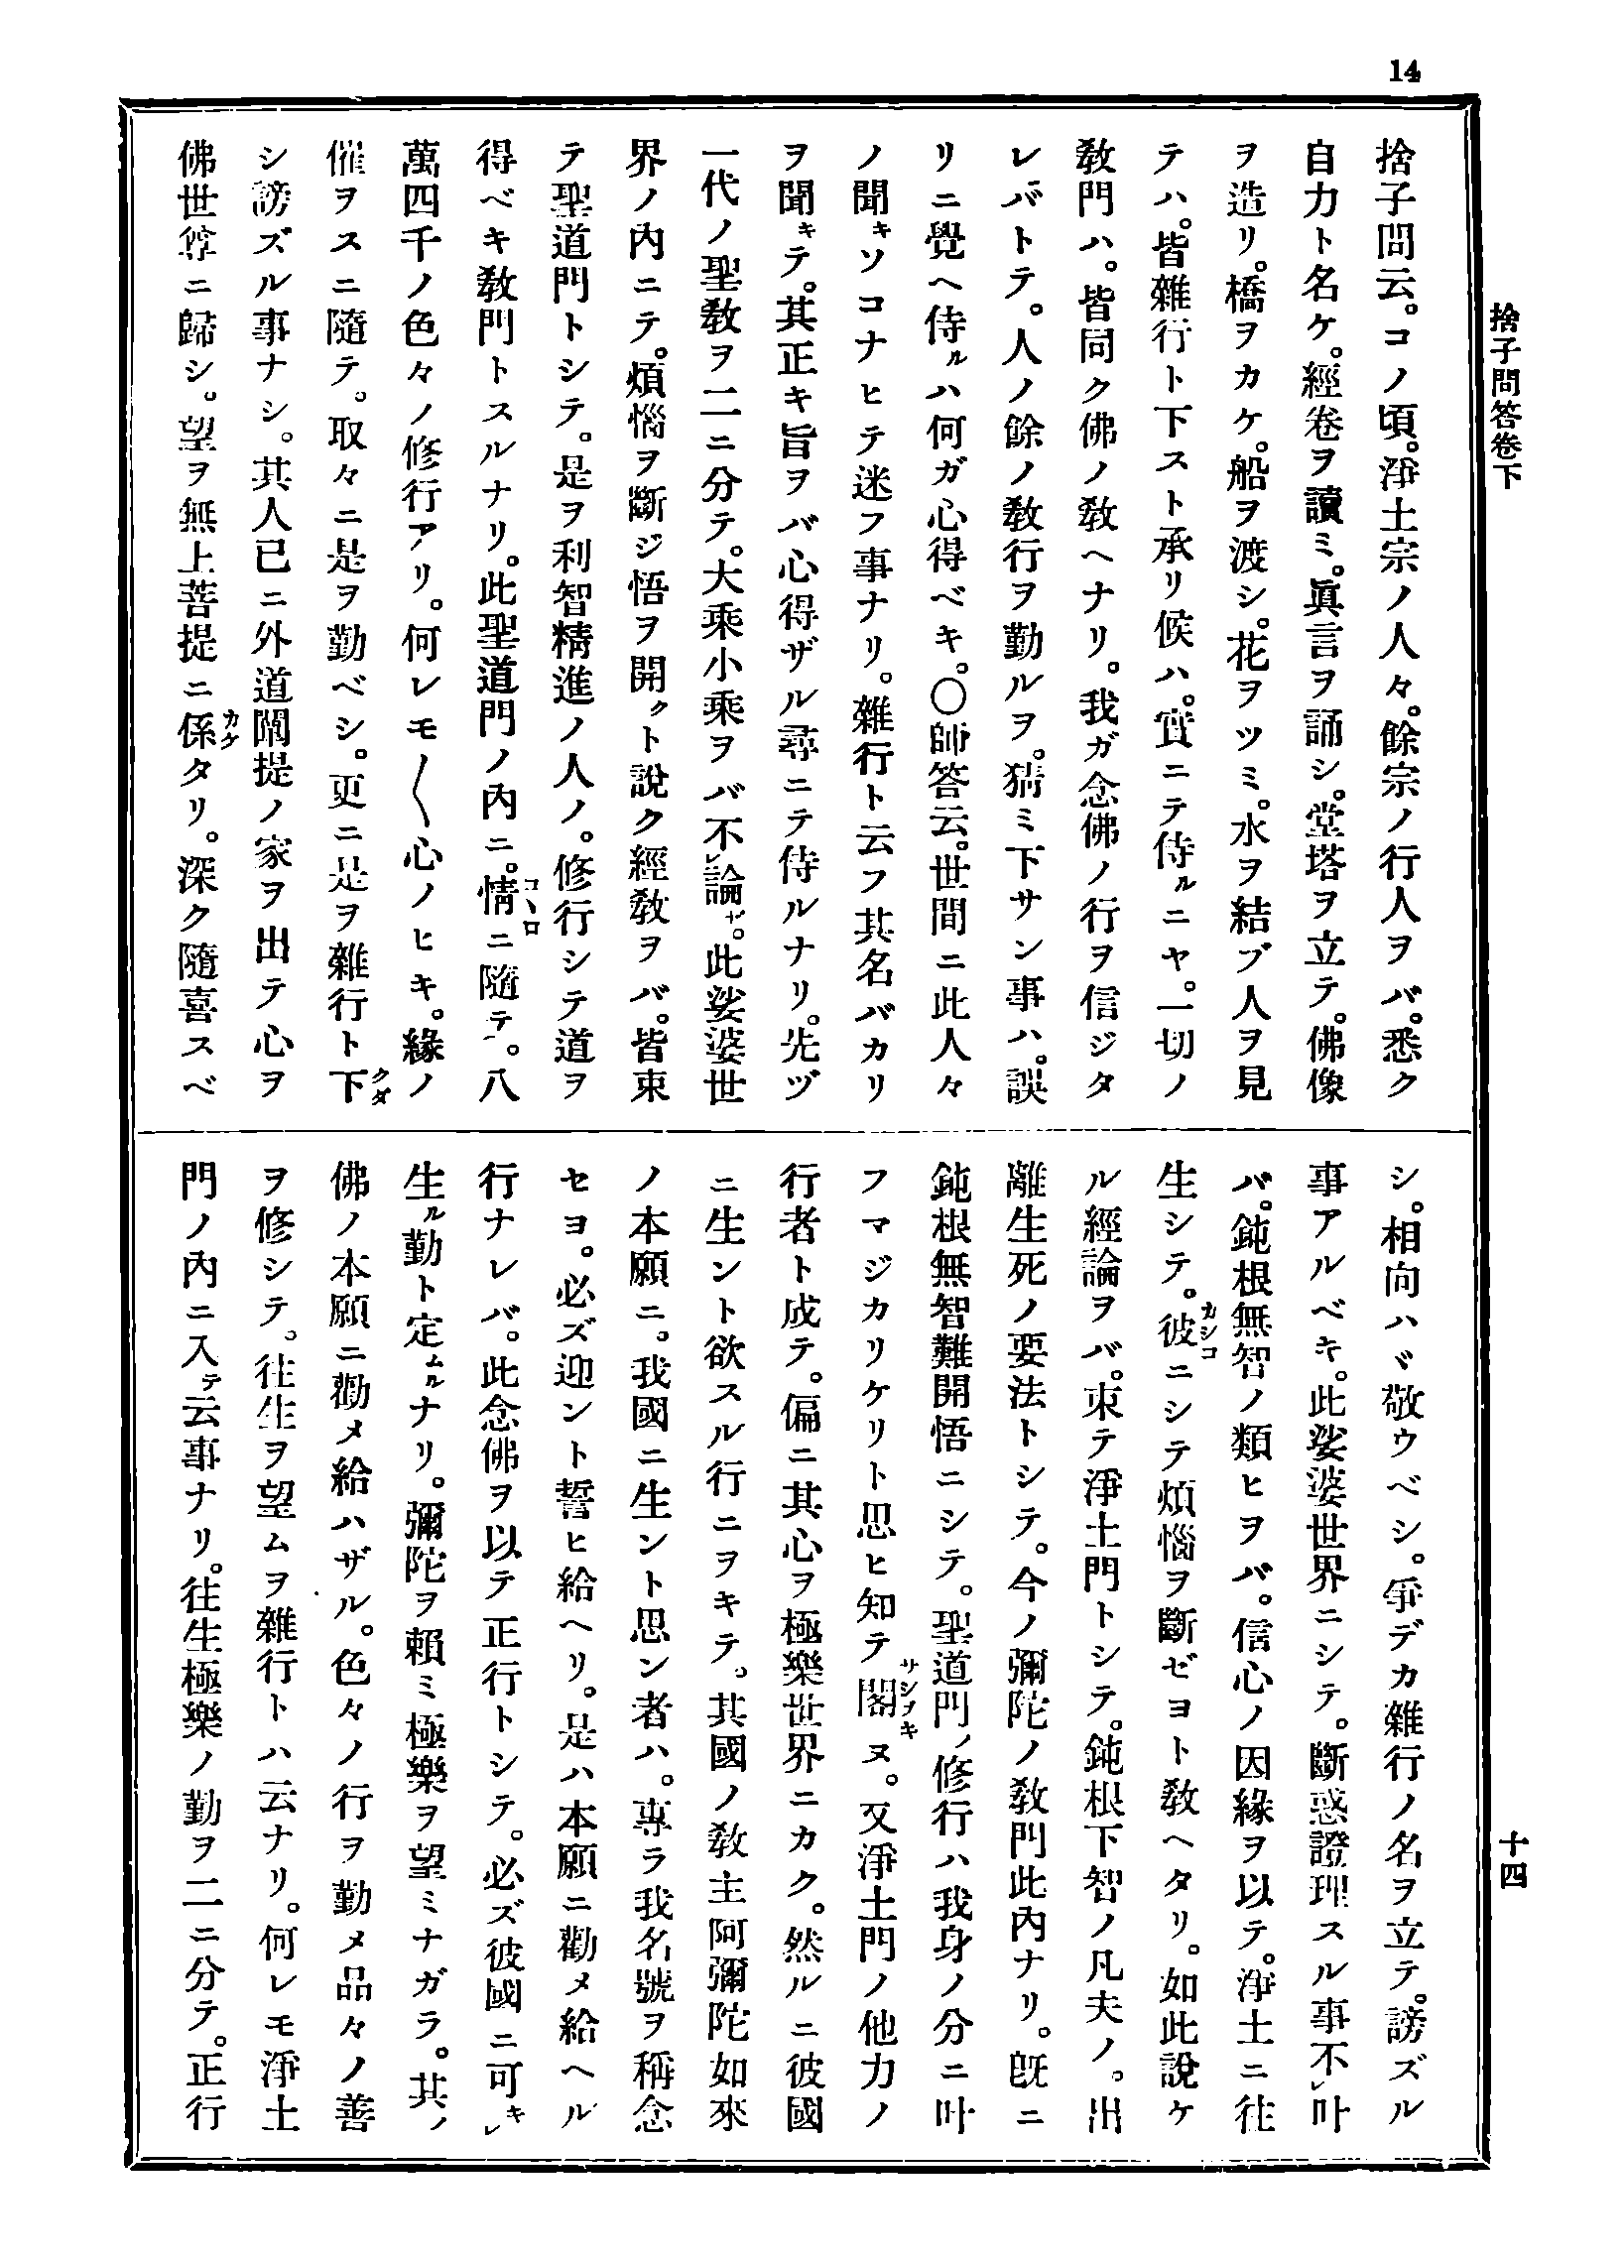 14
捨子問答卷下
捨子問云。コノ頃。淨土宗ノ人々。餘宗ノ行人ヲバ。悉ク
自力ト名ケ。經卷ヲ讀ミ。眞言ヲ誦シ。堂塔ヲ立テ。佛像
ヲ造リ。橋ヲカケ。船ヲ渡シ。花ヲツミ。水ヲ結ブ人ヲ見
テハ。皆雜行ト下スト承リ候ハ。實ニテ侍ルニヤ。一切ノ
敎門ハ。皆同ク佛ノ敎ヘナリ。我ガ念佛ノ行ヲ信ジタ
レバトテ。人ノ餘ノ敎行ヲ勤ルヲ。猜ミ下サン事ハ。誤
リニ覺ヘ侍ルハ何ガ心得ベキ。〇師答云。世間ニ此人々
ノ聞キソコナヒテ迷フ事ナリ。雜行ト云フ其名バカリ
ヲ聞キテ。其正キ旨ヲバ心得ザル尋ニテ侍ルナリ。先ヅ
一代ノ聖敎ヲ二ニ分テ。大乘小乘ヲバ不レ論ゼ。此娑婆世
界ノ內ニテ。煩惱ヲ斷ジ悟ヲ開クト說ク經敎ヲバ。皆束
テ聖道門トシテ。是ヲ利智精進ノ人ノ。修行シテ道ヲ
得ベキ敎門トスルナリ。此聖道門ノ內ニ。情コヽロニ隨テ。八
萬四千ノ色々ノ修行アリ。何レモ〱心ノヒキ。緣ノ
催ヲスニ隨テ。取々ニ是ヲ勤ベシ。更ニ是ヲ雜行ト下クダ
シ謗ズル事ナシ。其人已ニ外道闡提ノ家ヲ出テ心ヲ
佛世尊ニ歸シ。望ヲ無上菩提ニ係カケタリ。深ク隨喜スベ
シ。相向ハヾ敬ウベシ。爭デカ雜行ノ名ヲ立テ。謗ズル
事アルベキ。此娑婆世界ニシテ。斷惑證理スル事不レ叶
バ。鈍根無智ノ類ヒヲバ。信心ノ因緣ヲ以テ。淨土ニ往
生シテ。彼カシコニシテ煩惱ヲ斷ゼヨト敎ヘタリ。如此說ケ
ル經論ヲバ。束テ淨土門トシテ。鈍根下智ノ凡夫ノ。出
離生死ノ要法トシテ。今ノ彌陀ノ敎門此內ナリ。旣ニ
鈍根無智難開悟ニシテ。聖道門ノ修行ハ我身ノ分ニ叶
フマジカリケリト思ヒ知テ閣サシヲキヌ。又淨土門ノ他力ノ
行者ト成テ。偏ニ其心ヲ極樂世界ニカク。然ルニ彼國
ニ生ント欲スル行ニヲキテ。其國ノ敎主阿彌陀如來
ノ本願ニ。我國ニ生ント思ン者ハ。專ラ我名號ヲ稱念
セヨ。必ズ迎ント誓ヒ給ヘリ。是ハ本願ニ勸メ給ヘル
行ナレバ。此念佛ヲ以テ正行トシテ。必ズ彼國ニ可キレ
生ル勤ト定ムルナリ。彌陀ヲ賴ミ極樂ヲ望ミナガラ。其ノ
佛ノ本願ニ勸メ給ハザル。色々ノ行ヲ勤メ品々ノ善
ヲ修シテ。往生ヲ望ムヲ雜行トハ云ナリ。何レモ淨土
門ノ內ニ入テ云事ナリ。往生極樂ノ勤ヲ二ニ分テ。正行
十四